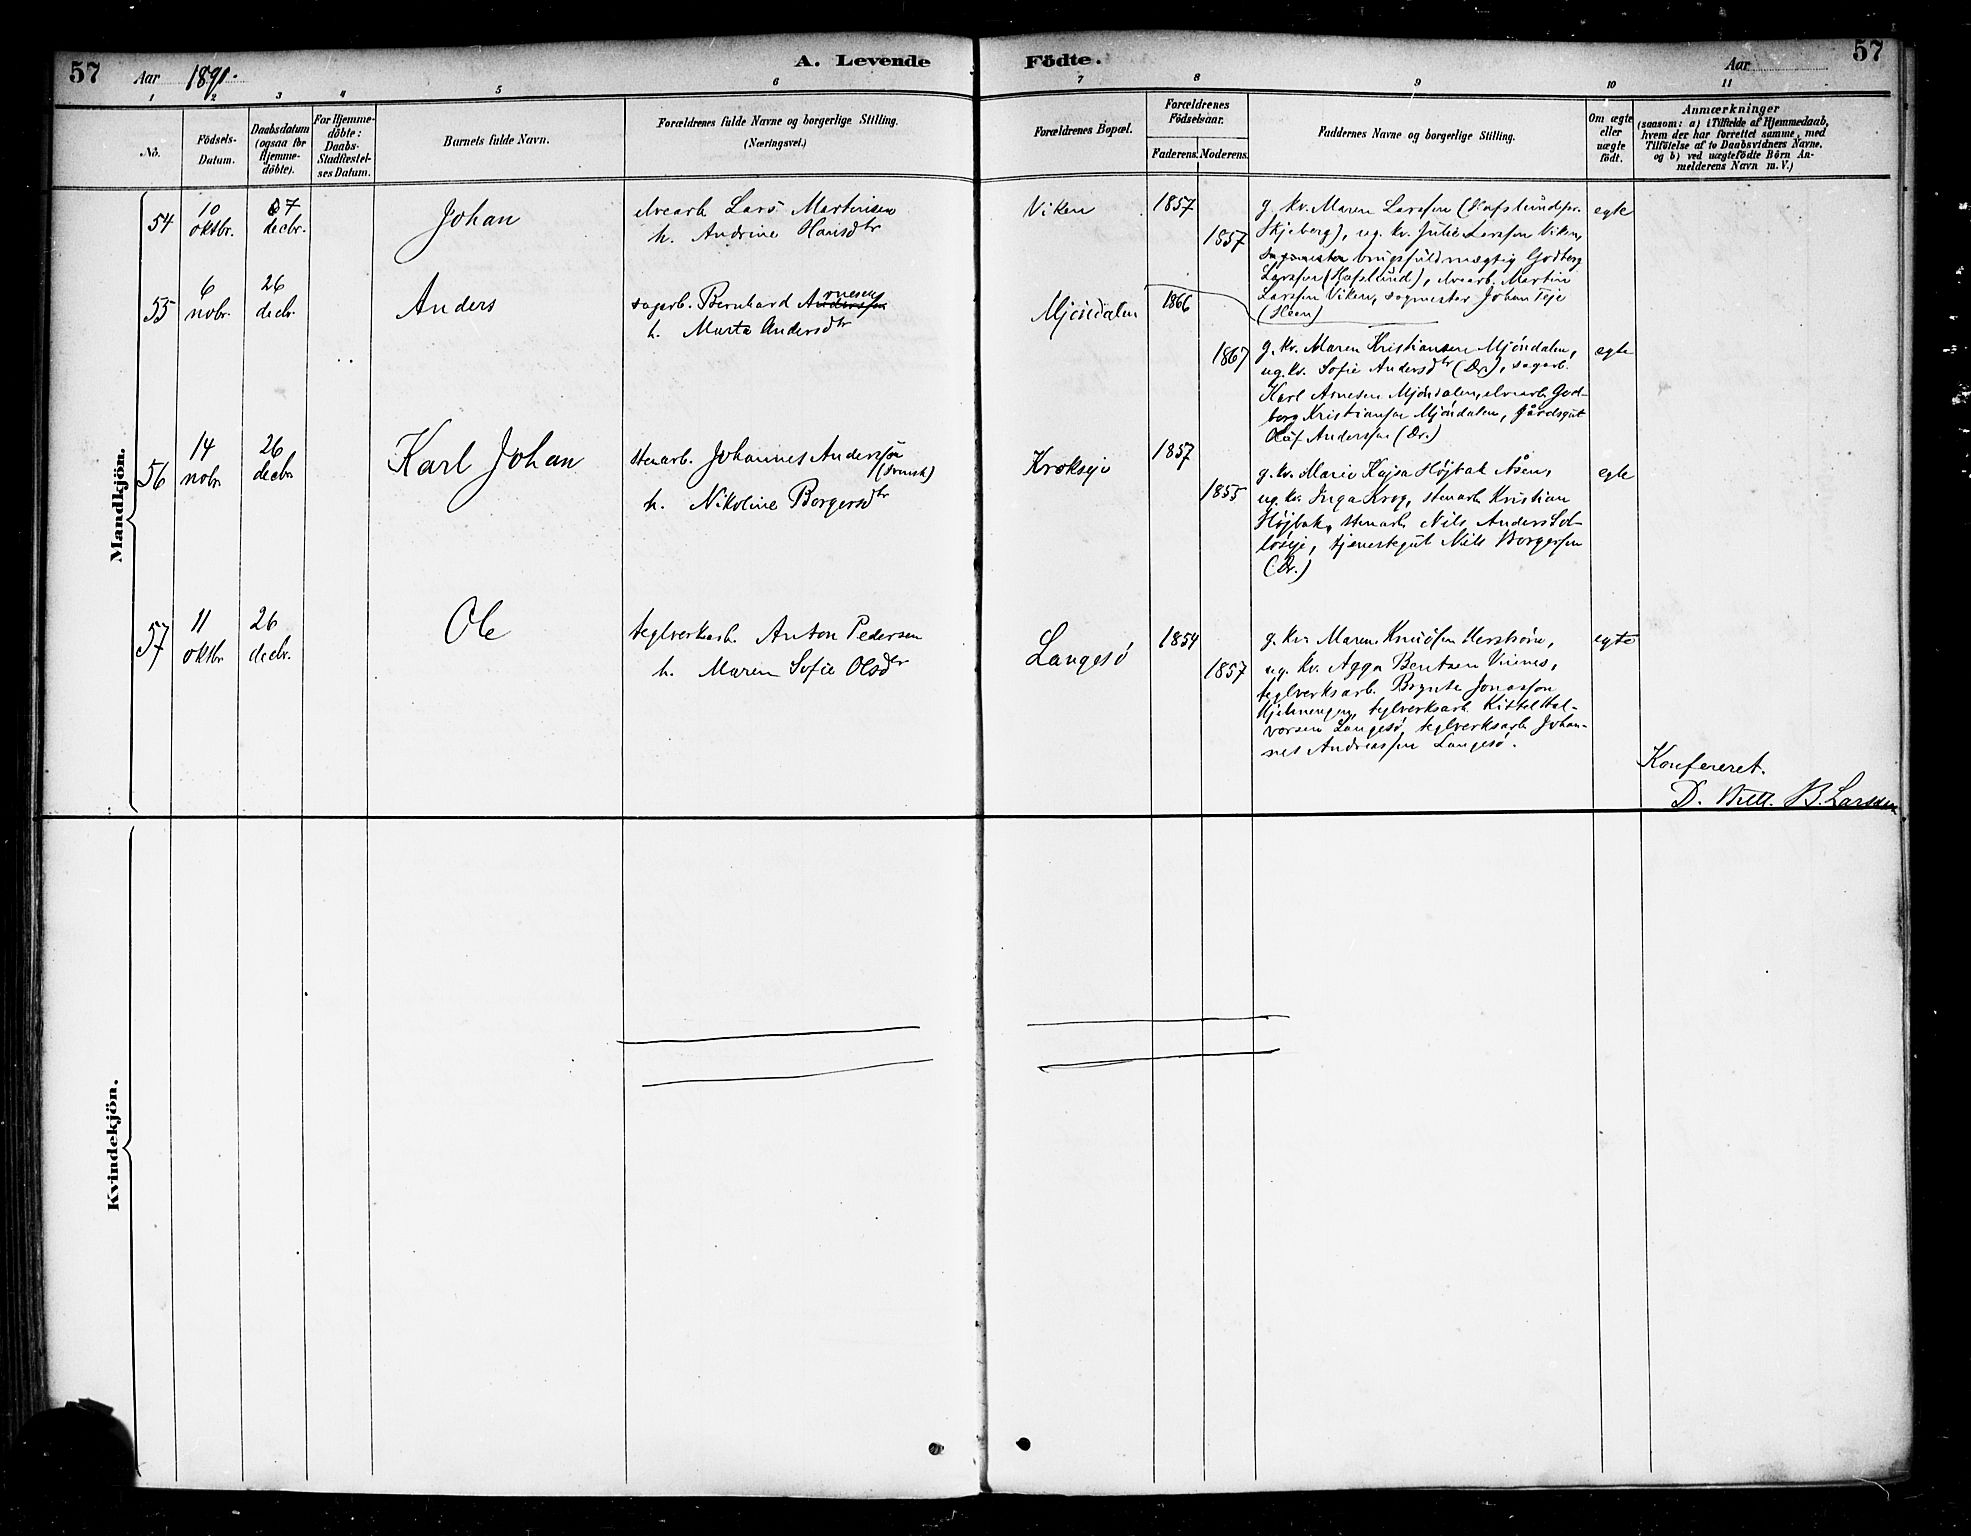 57 Aar 1891. A. Levende Födte. Aar 57
1 2 3 4 5 6 7 8 9 10 11
No.
Födsels-
Datum.
Daabsdatum
(ogsaa for
Hjemme-
döbte).
For Hjemme-
döbte:
Daabs-
Stadfæstel-
ses Datum.
Barnets fulde Navn.
Forældrenes fulde Navne og borgerlige Stilling.
(Næringsvei.)
Forældrenes Bopæl.
Forældrenes
Födselsaar.
Faderens. Moderens.
Faddernes Navne og borgerlige Stilling.
Om ægte
eller
uægte
födt.
Anmærkninger
(saasom: a) i Tilfælde af Hjemmedaab,
hvem der har forrettet samme, med
Tilföielse af to Daabsvidners Navne,
og b) ved uægtefödte Börn An-
melderens Navn m. V.)
Mandkjön.
54
10
oktbr.
27
decbr.
Johan
elvearb. Lars Martinsen
h. Andrine Hansdtr
Viken
1857
1857
g. kv. Maren Larssen (Hafslundspr.
Skjeberg), ug. kv. Julie Larssen Viken,
brugsfuldmægtig Godberg
Larssen (Hafslund), elvearb. Martin
Larssen Viken, sagmester Johan Teje
(Heen)
egte
55
6
nobr.
26
decbr.
Anders
sagarb. Bernhard Arnesen
h. Marta Andersdtr
Mjöndalen
1866
1867
g. kv. Maren Kristiansen Mjöndalen,
ug. kv. Sofie Andersdtr (Dr.), sagarb.
Karl Arnesen Mjöndalen, elvearb. God-
berg Kristiansen Mjöndalen, gårdsgut
Olaf Anderssen (Dr.)
egte
56
14
nobr.
26
decbr.
Karl Johan
stenarb. Johannes Andersson
(svensk)
h. Nikoline Borgersdtr
Kroksejе
1857
1855
g. kv. Marie Kajsa Höjbak Åsen,
ug. kv. Inga Krog, stenarb. Kristian
Höjbak, stenarb. Nils Anders Sol-
löseje, tjenestegut Nils Borgersen
(Dr.)
egte
57
11
oktbr.
26
decbr.
Ole
teglverksarb. Anton Pedersen
h. Maren Sofie Olsdtr
Langesö
1854
1857
g. kv. Maren Knudsen
ug. kv. Agga Bentsen
teglverksarb. Bernt Jonassen
teglverksarb. Kittel Hal-
vorsen Langesö, teglverksarb. Johan-
nes Andreassen Langesö.
egte
Konfereret.
D. B. Larssen
Kvindekjön.